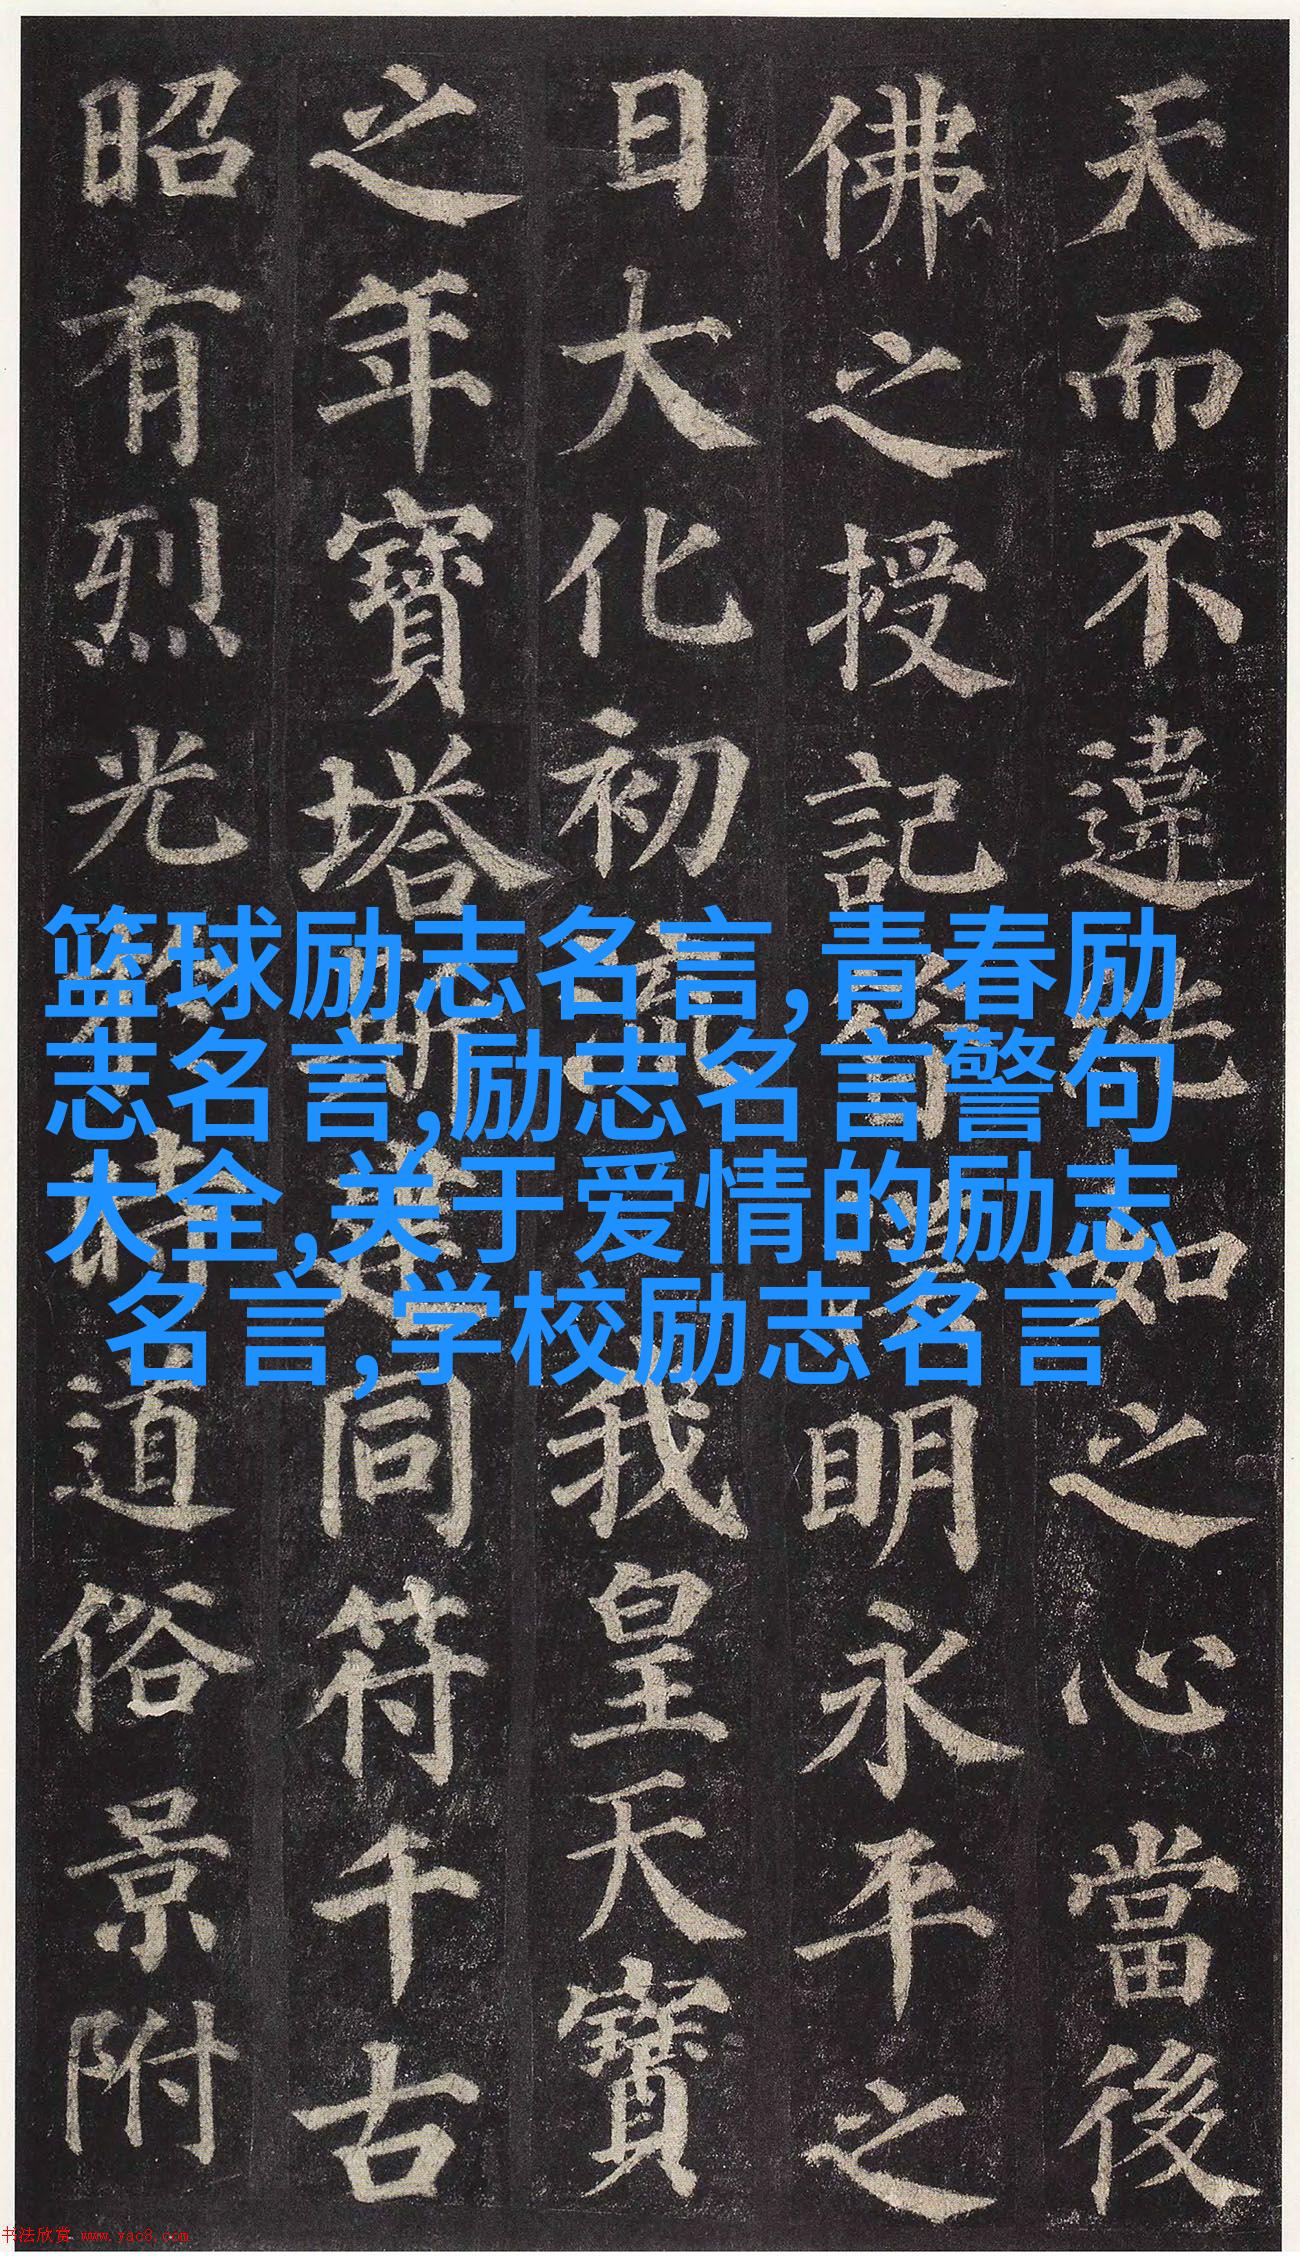 天而不違如之心當後
佛之授記明永平之
日大化初我皇天寶
之年寶塔斯建同符千古
昭有烈光時道俗景附
篮球励志名言,青春励
志名言,励志名言警句
大全,关于爱情的励志
名言,学校励志名言
书法欣赏 www.yac8.com